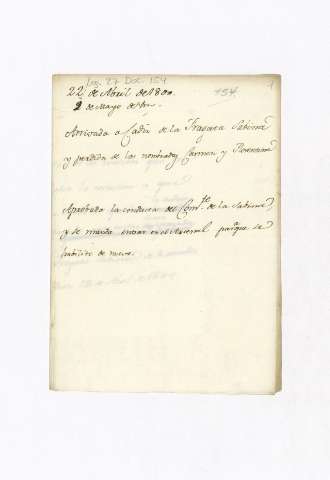 Leg. 27 Doc. 154
22 de Abril de 1800
154
1
2 de Mayo de
Arrivada a Cadiz de la Fragata Sabina
y perdida de las nombradas Carmen y Florentina
Aprobada la conducta del Com.te de la Sabina
y se manda entrar en el Arsenal para que se
habilite de nuevo.